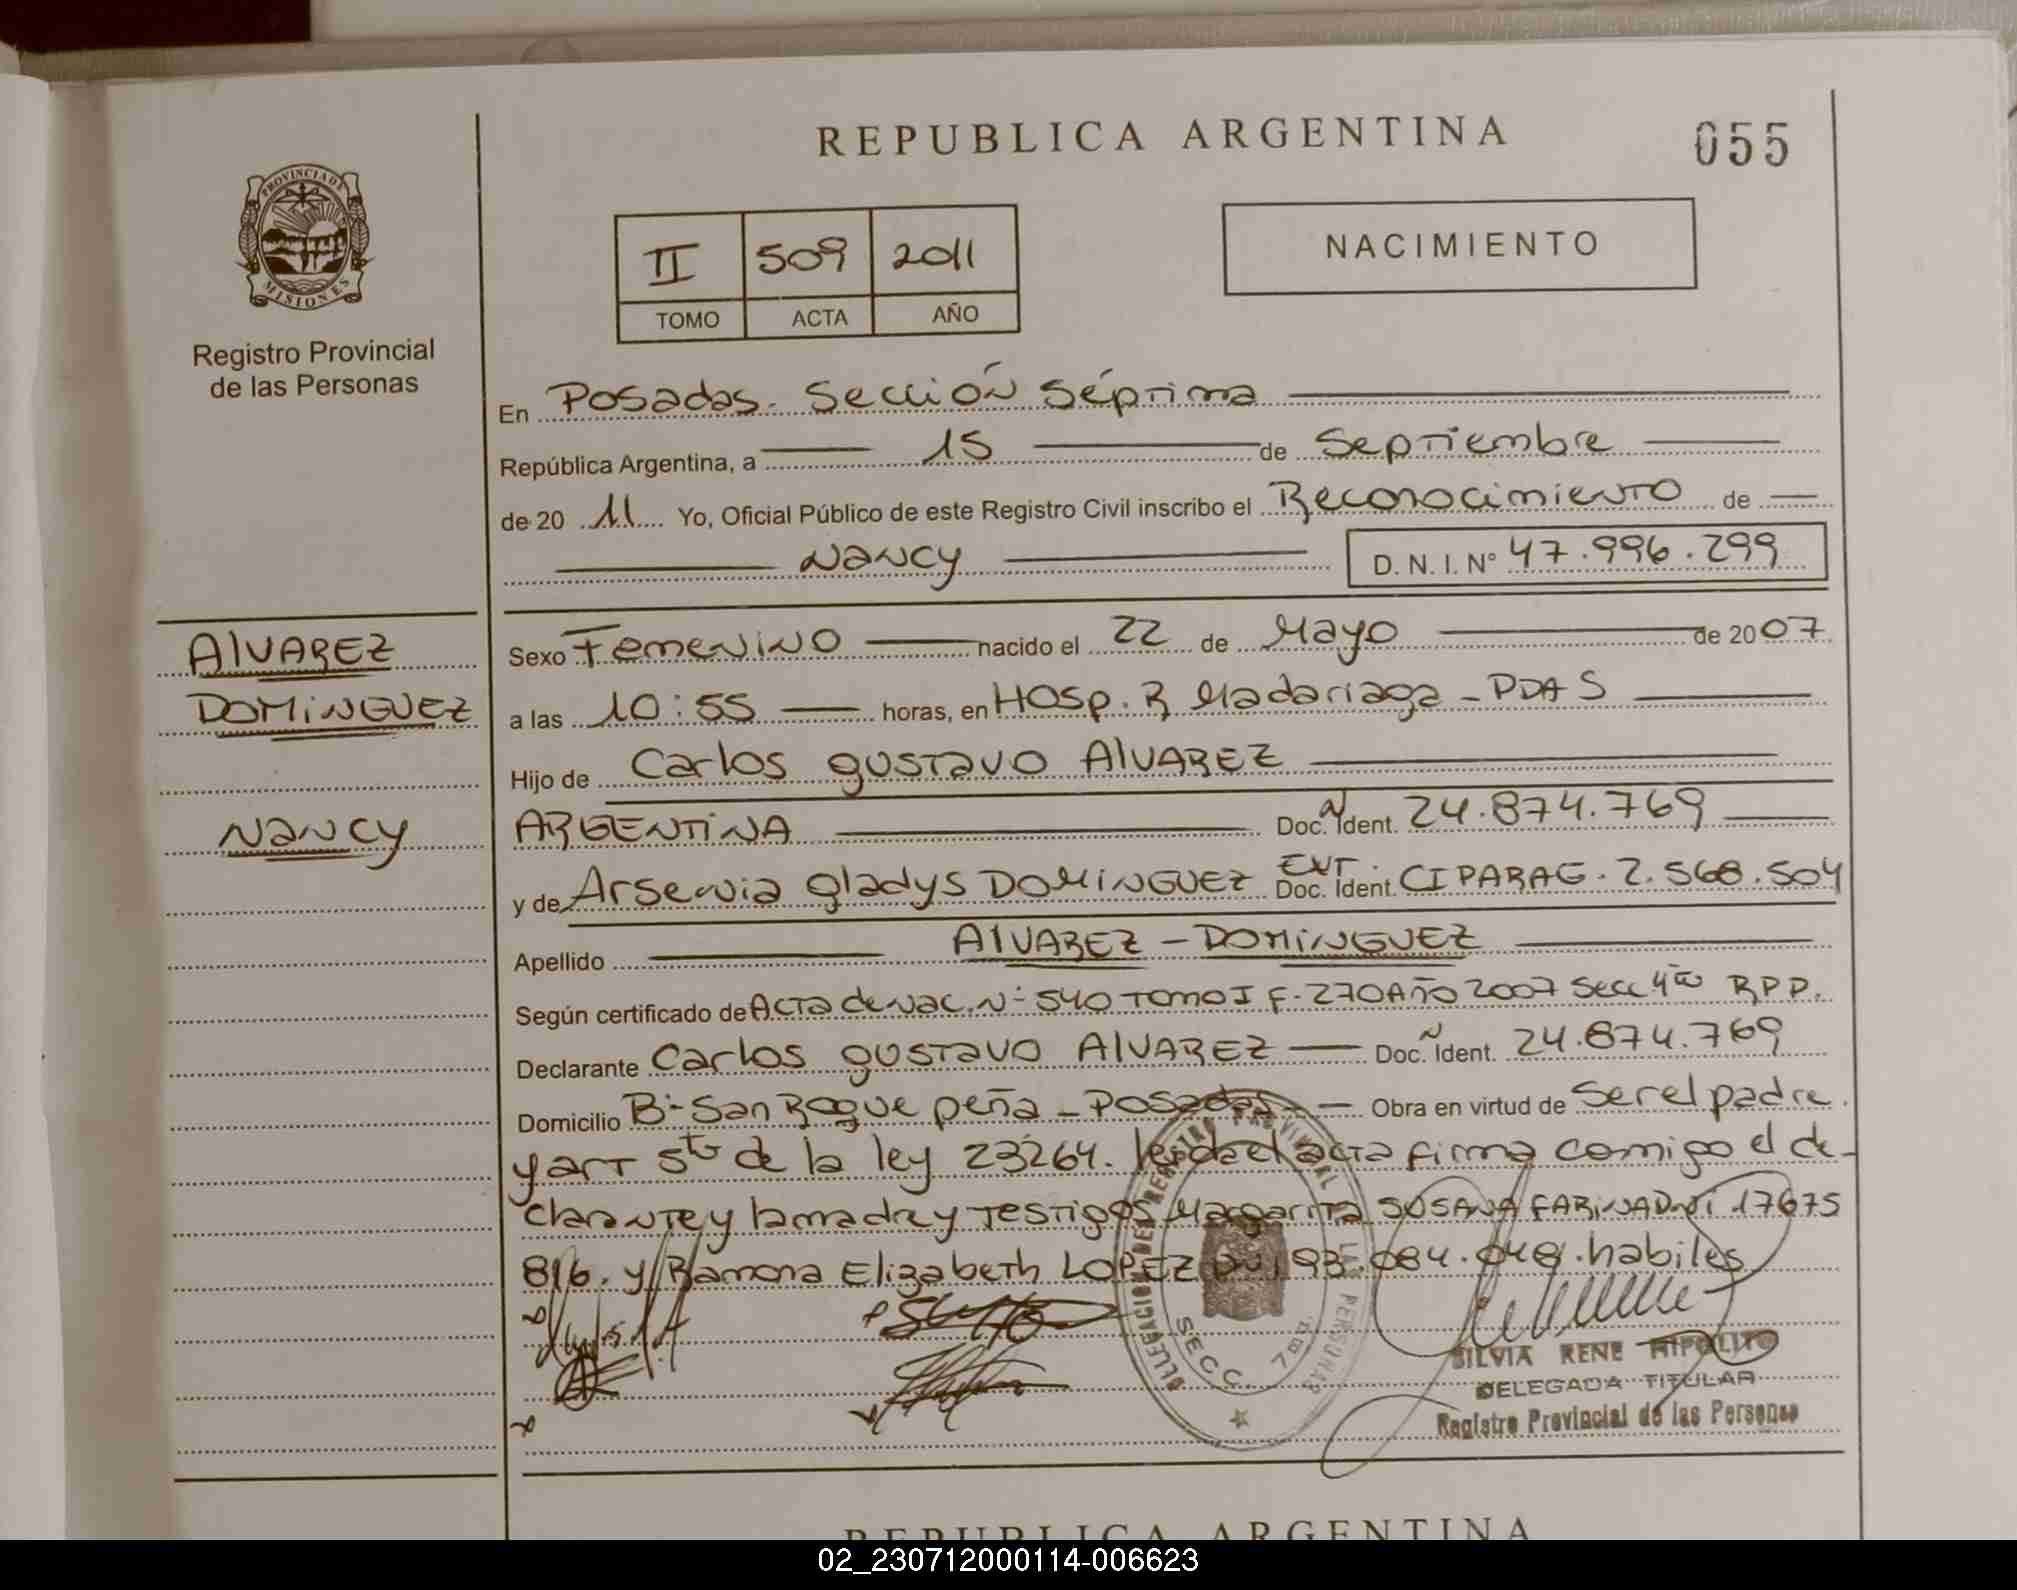 REPUBLICA ARGENTINA
055
PROVINCIA DE
MISIONES
Registro Provincial
de las Personas
II 509 2011
TOMO ACTA AÑO
NACIMIENTO
En Posadas. Sección Séptima
República Argentina, a 15 de Septiembre
de 20 11 Yo, Oficial Público de este Registro Civil inscribo el Reconocimiento de
Nancy D. N. I. Nº 47.996.299
ALVAREZ
DOMINGUEZ
NANCY
Sexo Femenino nacido el 22 de Mayo de 2007
a las 10:55 horas, en Hosp. R Madariaga - PDAS
Hijo de Carlos gustavo ALVAREZ
ARGENTINA Doc. Ident. 24.874.769
y de Arsenia gladys DOMINGUEZ EXT. Doc. Ident. CI PARAG. 2.568.504
Apellido ALVAREZ - DOMINGUEZ
Según certificado de Acta de nac. Nº 540 Tomo I F-270 Año 2007 Secc 4ta RPP.
Declarante Carlos gustavo ALVAREZ Doc. Ident. 24.874.769
Domicilio Bº San Roque peña - Posadas - Obra en virtud de Ser el padre
y art 5to de la ley 23264. leida el acta firma comigo el de-
clarante y la madre y Testigos Margarita SUSANA FARINA Dni 17675
816. y Ramona Elizabeth LOPEZ Dni 93.084.048. habiles
DELEGACION DEL REGISTRO PROVINCIAL DE LAS PERSONAS
SECC. 7ma
SILVIA RENE HIPOLITO
DELEGADA TITULAR
Registro Provincial de las Personas
REPUBLICA ARGENTINA
02_230712000114-006623